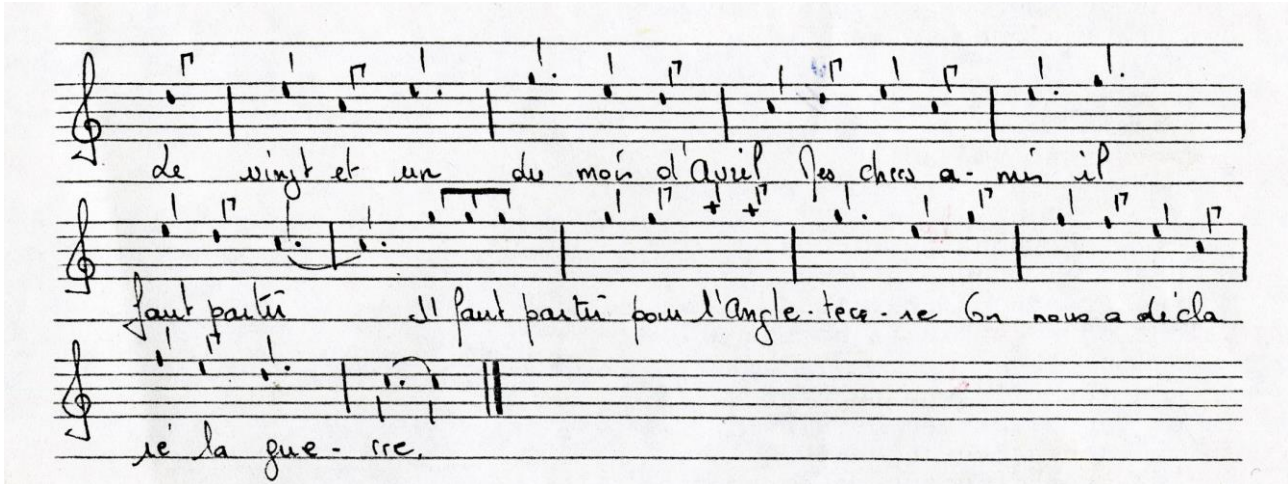 Le vingt et un du mois d'Avril Mes chers a- mis il
faut partir Il faut partir pour l'Angle-terr-re On nous a décla
ré la gue-rre.